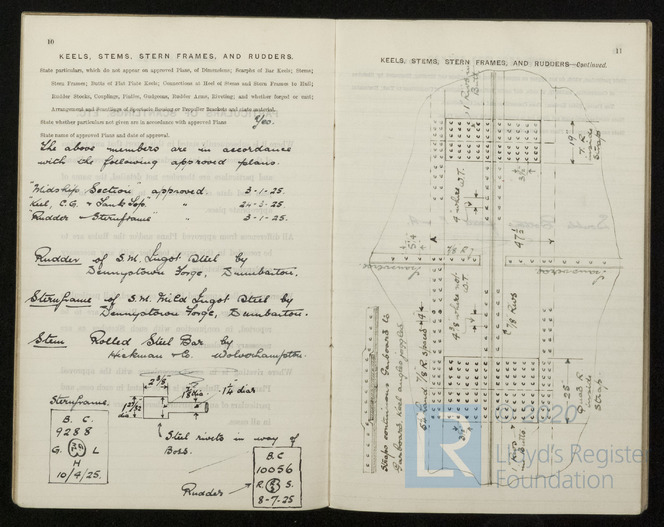 10
KEELS, STEMS, STERN FRAMES, AND RUDDERS.
State particulars, which do not appear on approved Plans, of Dimensions; Scarphs of Bar Keels; Stems;
Stern Frames; Butts of Flat Plate Keels; Connections at Heel of Stems and Stern Frames to Hull;
Rudder Stocks, Couplings, Pintles, Gudgeons, Rudder Arms, Riveting; and whether forged or cast;
Arrangement and Scantlings of Spectacle Bossing or Propeller Brackets and state material.
State whether particulars not given are in accordance with approved Plans Yes.
State name of approved Plans and date of approval.
The above members are in accordance
with the following approved plans.
"Midship Section" approved. 3-1-25.
"Keel, C.G. & Tank Top" " 24-3-25.
"Rudder & Sternframe" " 3-1-25.
Rudder of S.M. Ingot Steel by
Dennystown Forge, Dumbarton.
Sternframe of S.M. Mild Ingot Steel by
Dennystown Forge, Dumbarton.
Stem Rolled Steel Bar by
Hickman & Co. Wolverhampton.
Sternframe.
B.C.
9288
G. L
H
10/4/25.
2 3/8
1 1/4 dia
dia
Steel rivets in way of
Boss.
Rudder
B.C
10056
R. S.
8-7-25
11
KEELS, STEMS, STERN FRAMES, AND RUDDERS—Continued.
19"
T. R
inside
Strap
3 1/2
4 where O.T.
47 1/2
4 3/8 where not
O.T.
7/8 Rivs
25"
Quad R
inside
Strap
Straps continuous Garboard to
Garboard. Keel angles joggled.
© 2020
LR
Lloyd's Register
Foundation